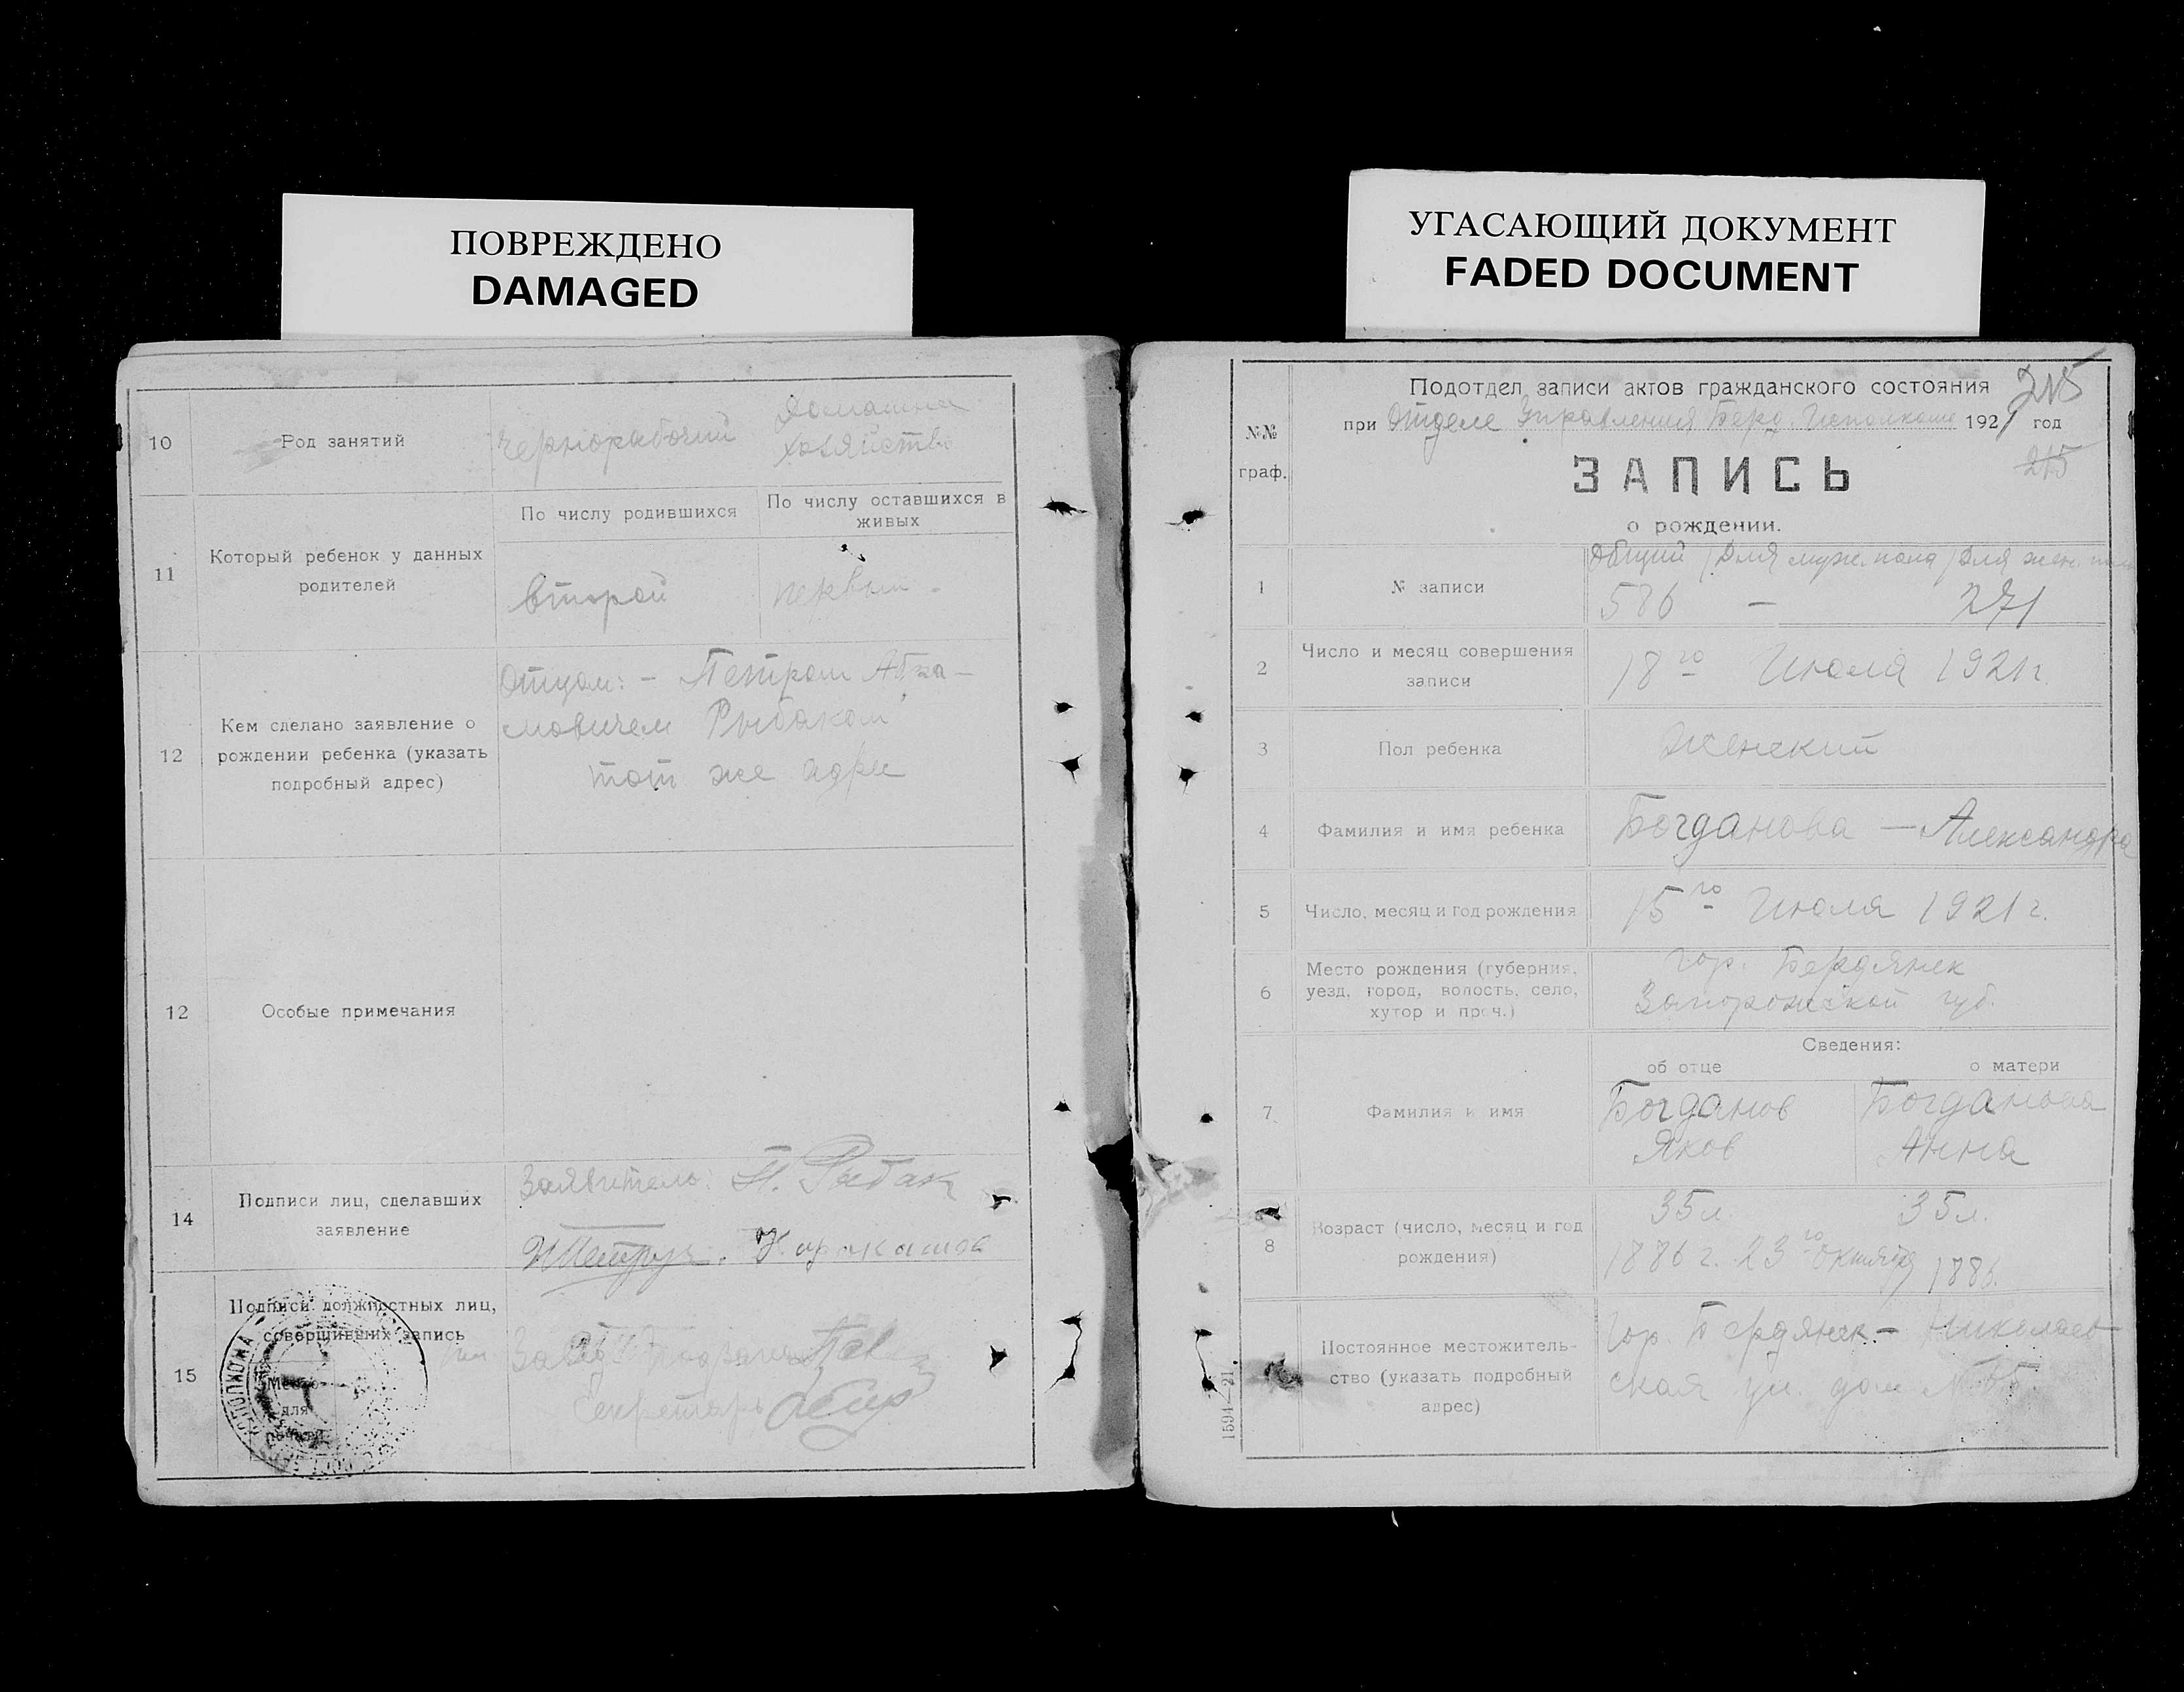 ПОВРЕЖДЕНО
DAMAGED
УГАСАЮЩИЙ ДОКУМЕНТ
FADED DOCUMENT
10
Род занятий
Чернорабочий
Домашн
хозяйств
11
Который ребенок у данных
родителей
По числу родившихся
По числу оставшихся в
живых
второй
первый -
12
Кем сделано заявление о
рождении ребенка (указать
подробный адрес)
Отцом: - Петром Абра-
мовичем Рыбаком
тот же адрес
12
Особые примечания
14
Подписи лиц, сделавших
заявление
Заявитель: П. Рыбак
15
Подписи должностных лиц,
совершивших запись
Место
для
печати
Секретарь
215
Подотдел записи актов гражданского состояния
при Отделе Управления Берд. Исполкома 1921 год
215
№№
граф.
ЗАПИСЬ
о рождении.
1
№ записи
Общий / Для муж. пола / Для жен. пол
586 — 271
2
Число и месяц совершения
записи
18го Июля 1921 г.
3
Пол ребенка
Женский
4
Фамилия и имя ребенка
Богданова — Александра
5
Число, месяц и год рождения
15го Июля 1921 г.
6
Место рождения (губерния,
уезд, город, волость, село,
хутор и проч.)
гор. Бердянск
Запорожской губ.
Сведения:
об отце
о матери
7
Фамилия и имя
Богданов
Яков
Богданова
Анна
8
Возраст (число, месяц и год
рождения)
35 л.
35 л.
1886 г. 23го Октября
1886.
Постоянное местожитель-
ство (указать подробный
адрес)
Гор. Бердянск - Николаев-
ская ул. дом №
1594—21.